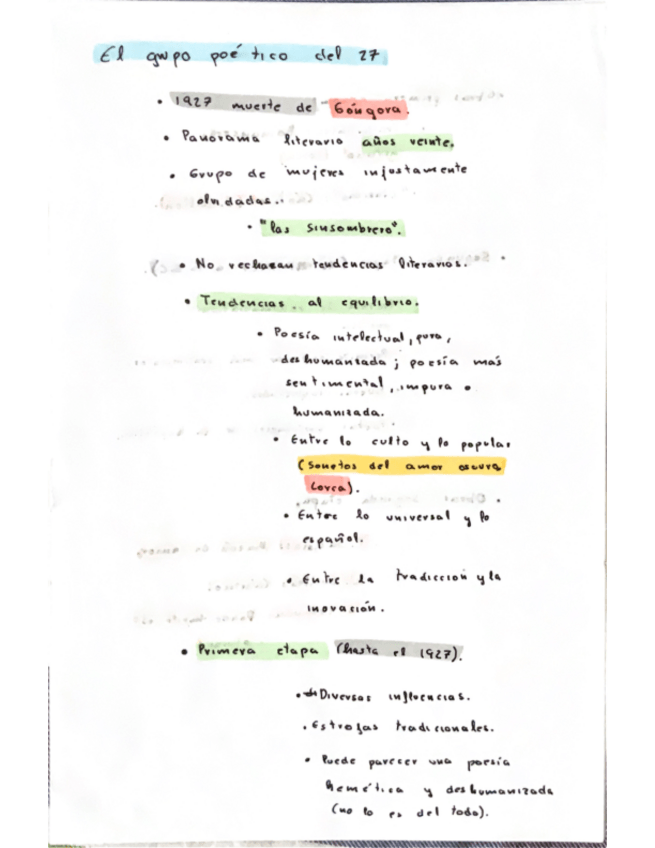 El grupo poético del 27
• 1927 muerte de Góngora.
• Panorama literario años veinte.
• Grupo de mujeres injustamente
olvidadas.
• "las sinsombrero".
• No rechazan tendencias literarias.
• Tendencias al equilibrio.
• Poesía intelectual, pura,
deshumanizada; poesía más
sentimental, impura o
humanizada.
• Entre lo culto y lo popular
(Sonetos del amor oscuro
Lorca).
• Entre lo universal y lo
español.
• Entre la tradiccion y la
inovación.
• Primera etapa (hasta el 1927).
• Diversas influencias.
• Estrofas tradicionales.
• Puede parecer una poesía
hemética y deshumanizada
(no lo es del todo).